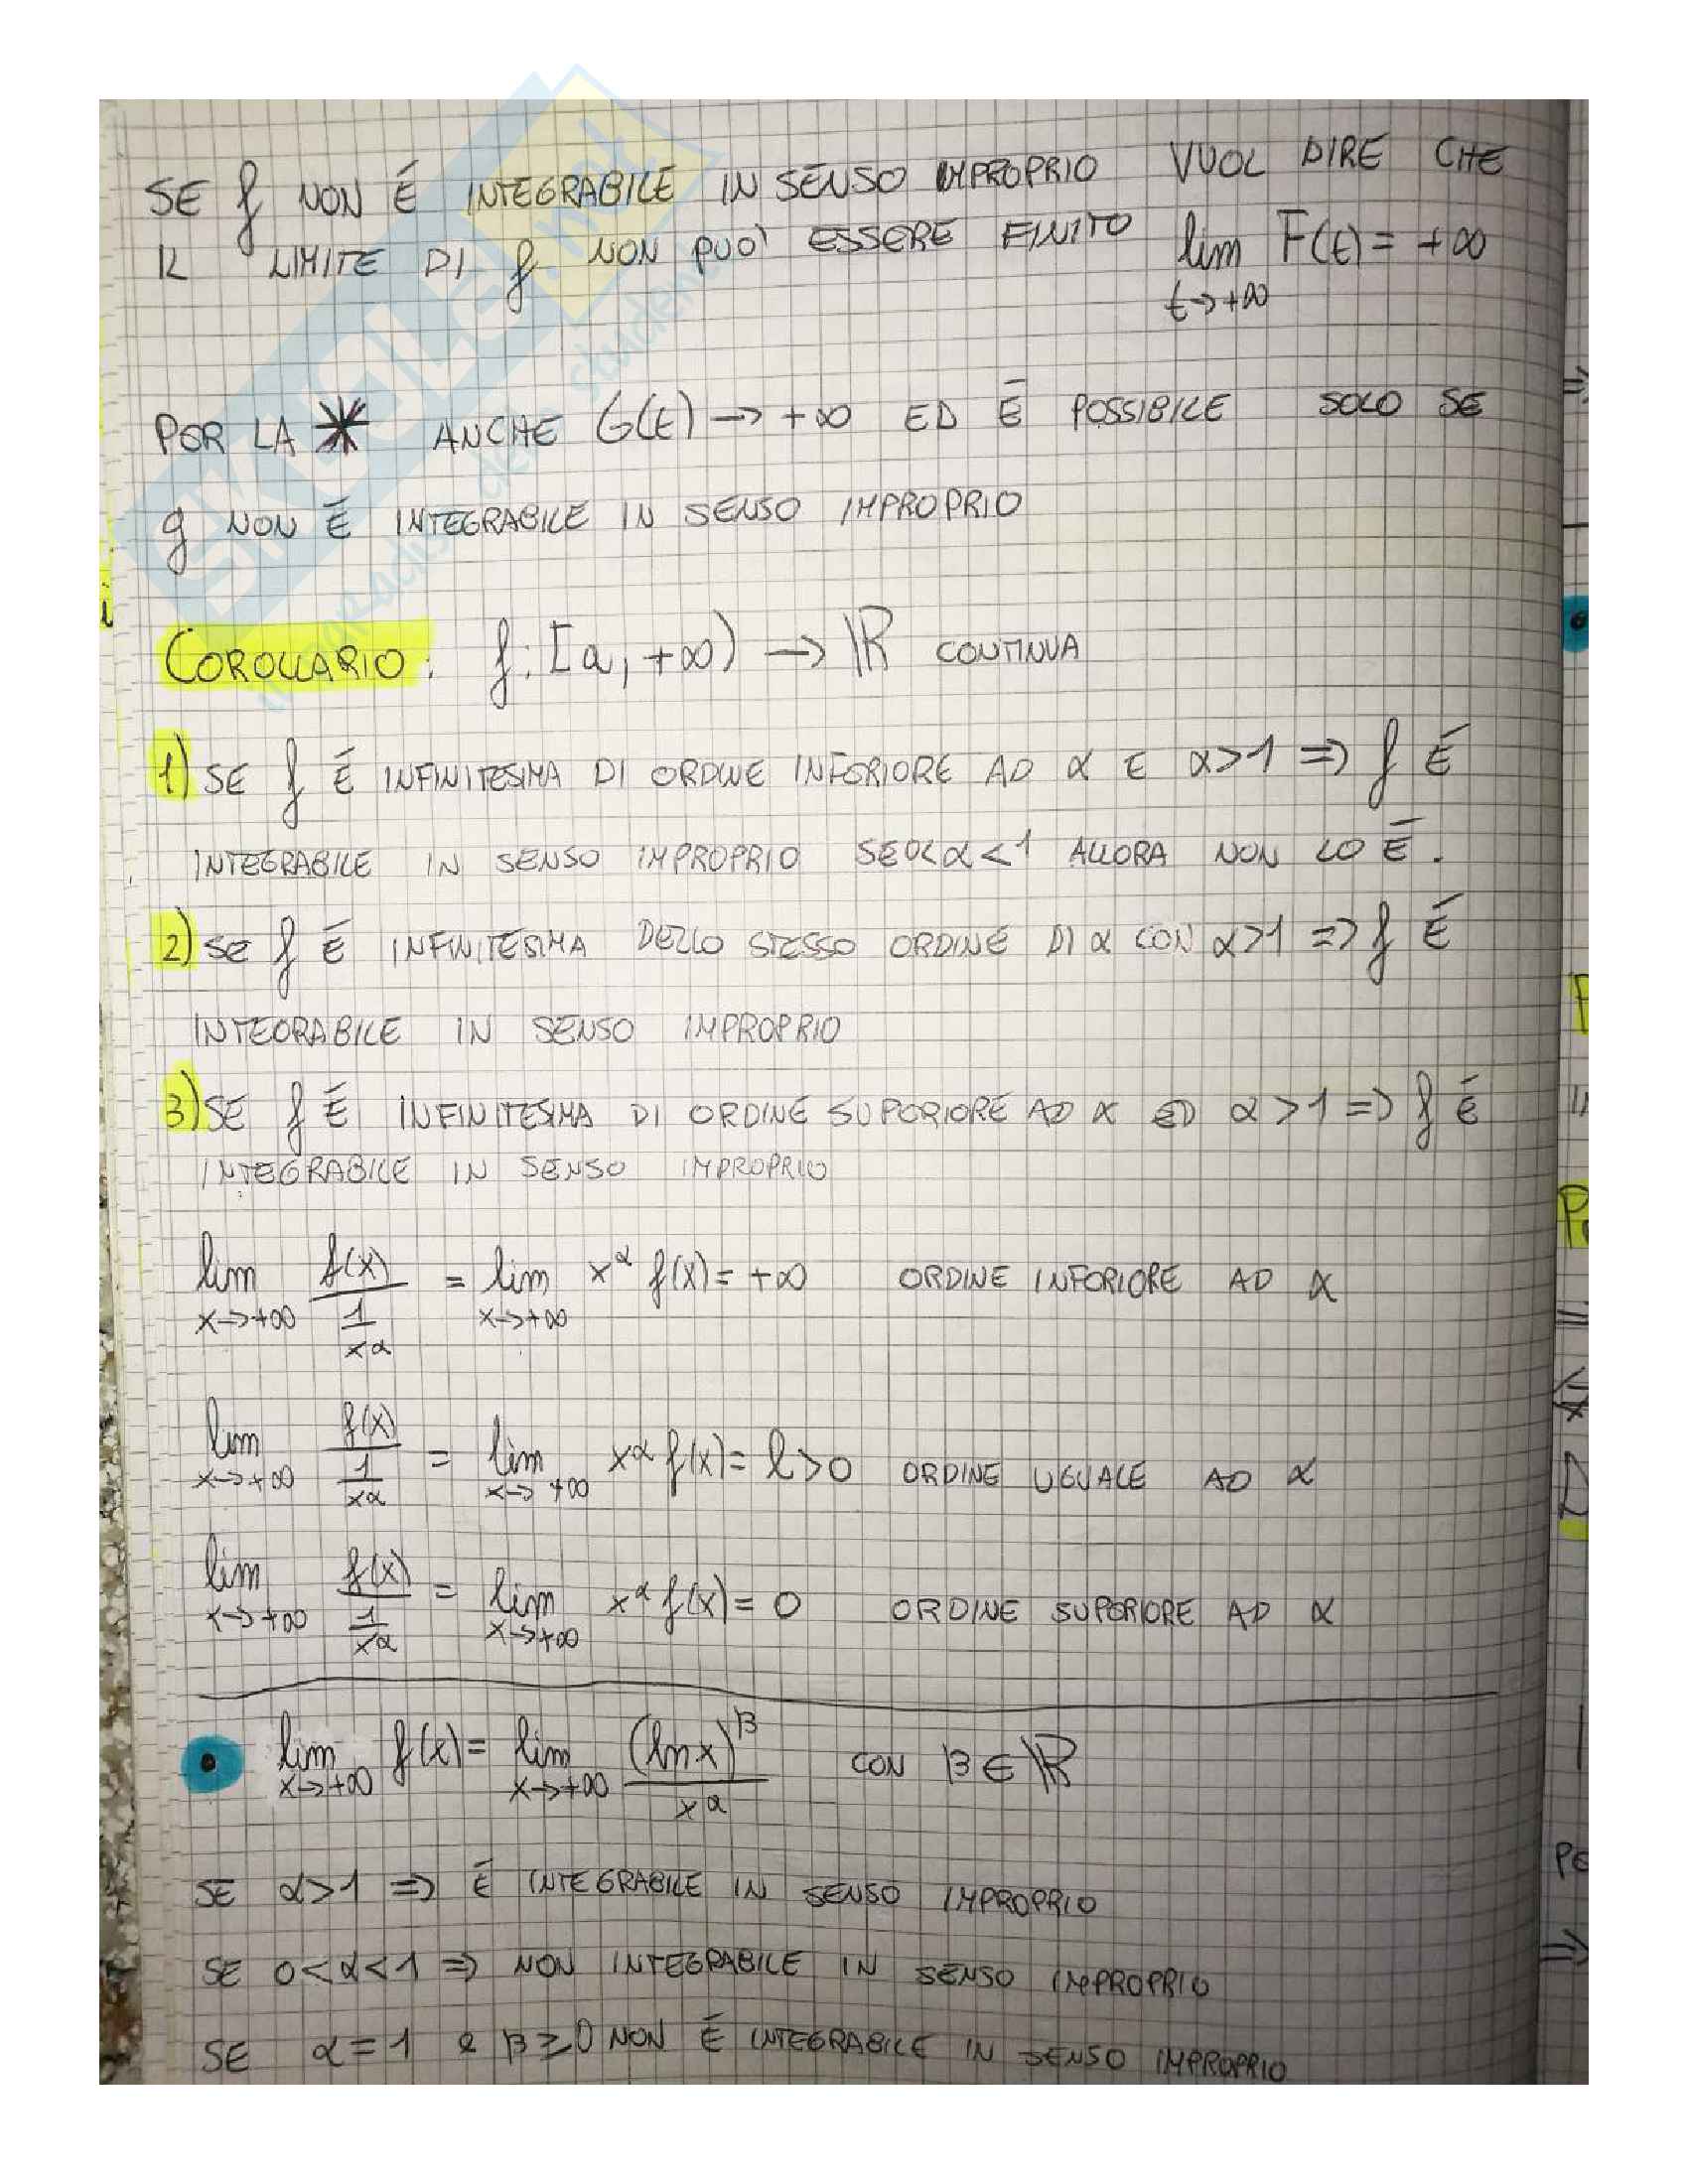 SE f NON É INTEGRABILE IN SENSO IMPROPRIO VUOL DIRE CHE
IL LIMITE DI f NON PUO' ESSERE FINITO lim F(t) = +∞
t→+∞
POR LA * ANCHE G(t) → +∞ ED É POSSIBILE SOLO SE
g NON É INTEGRABILE IN SENSO IMPROPRIO
COROLLARIO: f: [a, +∞) → ℝ CONTINUA
1) SE f É INFINITESIMA DI ORDINE INFORIORE AD α E α>1 => f É
INTEGRABILE IN SENSO IMPROPRIO SE 0<α<1 ALLORA NON LO É.
2) SE f É INFINITESIMA DELLO STESSO ORDINE DI α CON α>1 => f É
INTEGRABILE IN SENSO IMPROPRIO
3) SE f É INFINITESIMA DI ORDINE SUPORIORE AD α ED α>1 => f É
INTEGRABILE IN SENSO IMPROPRIO
lim x→+∞ f(x)/(1/x^α) = lim x→+∞ x^α f(x) = +∞ ORDINE INFORIORE AD α
lim x→+∞ f(x)/(1/x^α) = lim x→+∞ x^α f(x) = l>0 ORDINE UGUALE AD α
lim x→+∞ f(x)/(1/x^α) = lim x→+∞ x^α f(x) = 0 ORDINE SUPORIORE AD α
• lim x→+∞ f(x) = lim x→+∞ (ln x)^β/x^α CON β∈ℝ
SE α>1 => É INTEGRABILE IN SENSO IMPROPRIO
SE 0<α<1 => NON INTEGRABILE IN SENSO IMPROPRIO
SE α=1 e β≥0 NON É INTEGRABILE IN SENSO IMPROPRIO
SKUOLA.net